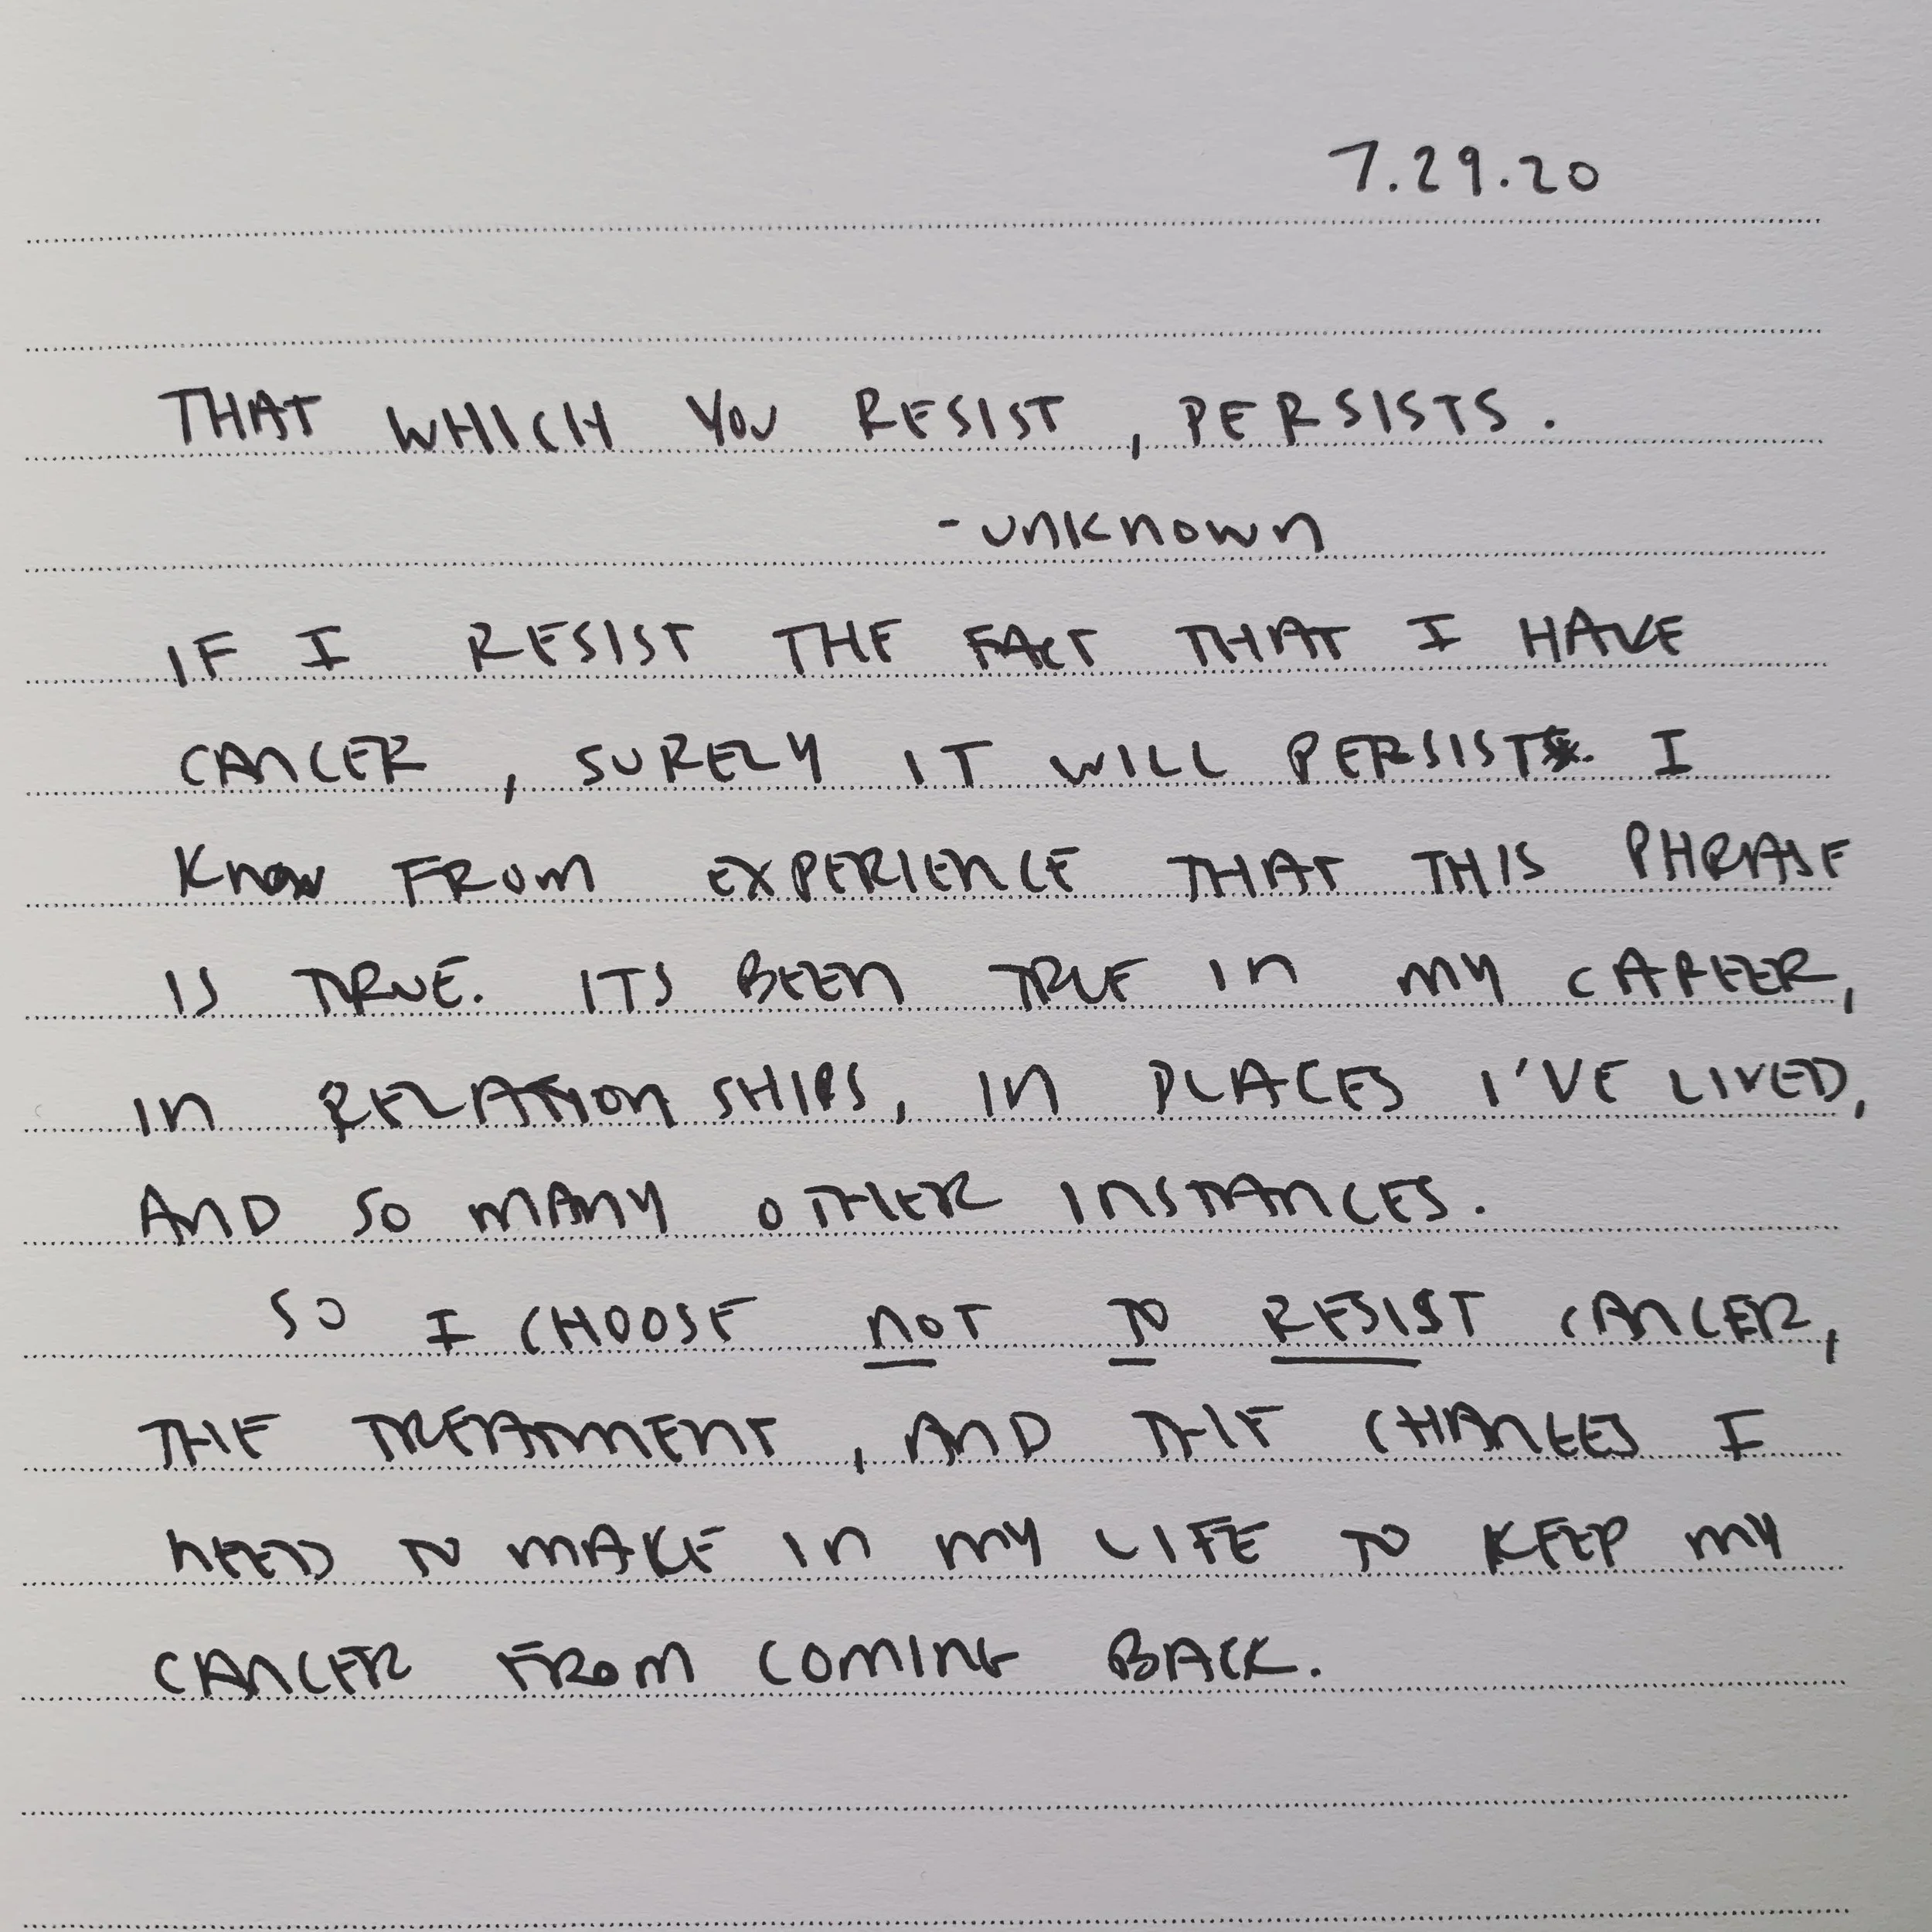 7.29.20
THAT WHICH YOU RESIST, PERSISTS.
- UNKNOWN
IF I RESIST THE FACT THAT I HAVE
CANCER, SURELY IT WILL PERSIST. I
KNOW FROM EXPERIENCE THAT THIS PHRASE
IS TRUE. ITS BEEN TRUE IN MY CAREER,
IN RELATIONSHIPS, IN PLACES I'VE LIVED,
AND SO MANY OTHER INSTANCES.
SO I CHOOSE NOT TO RESIST CANCER,
THE TREATMENT, AND THE CHANGES I
NEED TO MAKE IN MY LIFE TO KEEP MY
CANCER FROM COMING BACK.